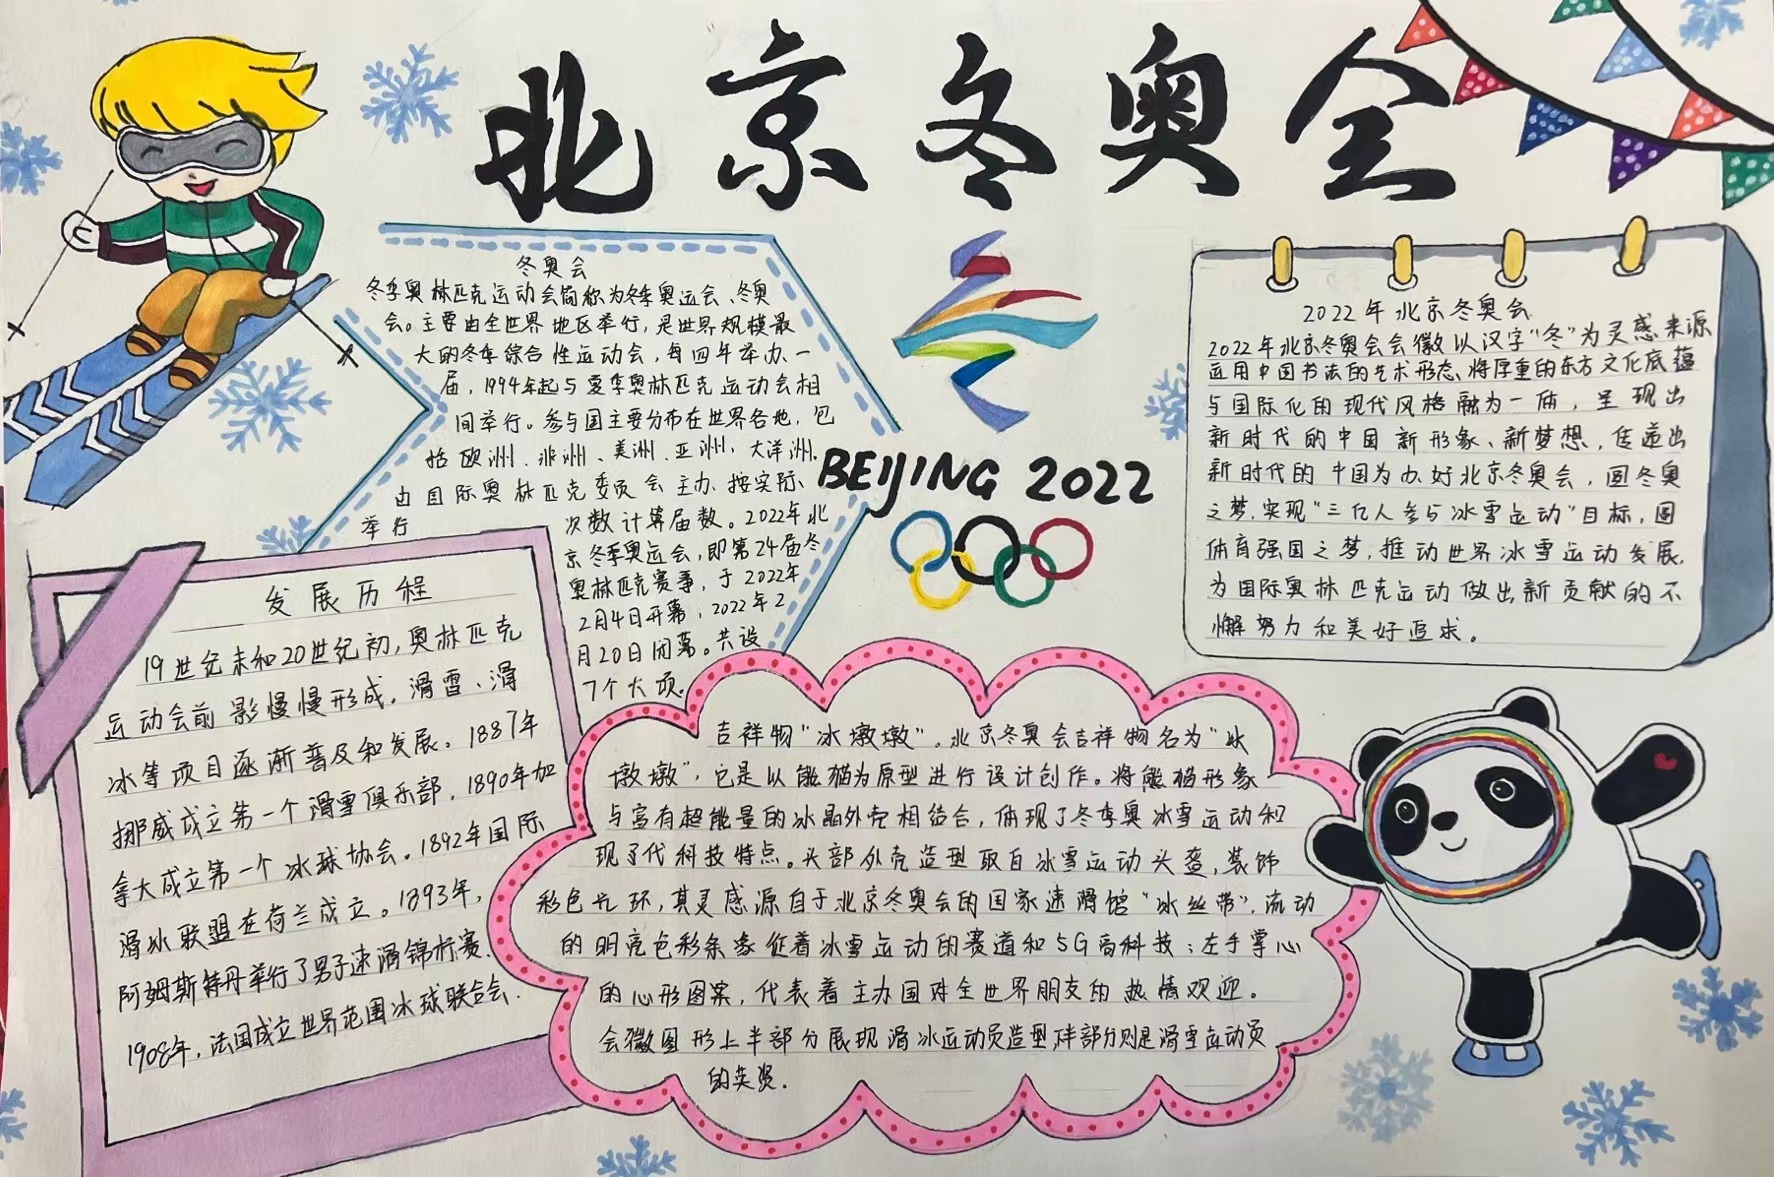 北京冬奥会
冬奥会
冬季奥林匹克运动会简称为冬季奥运会、冬奥
会。主要由全世界地区举行，是世界规模最
大的冬季综合性运动会，每四年举办一
届，1994年起与夏季奥林匹克运动会相
间举行。参与国主要分布在世界各地，包
括欧洲、非洲、美洲、亚洲，大洋洲。
由国际奥林匹克委员会主办、按实际
举行
次数计算届数。2022年北
京冬季奥运会，即第24届冬
奥林匹克赛事，于2022年
2月4日开幕，2022年2
月20日闭幕。共设
7个大项。
BEIJING 2022
2022年北京冬奥会
2022年北京冬奥会会徽以汉字“冬”为灵感来源
运用中国书法的艺术形态、将厚重的东方文化底蕴
与国际化的现代风格融为一体，呈现出
新时代的中国新形象、新梦想，传递出
新时代的中国为办好北京冬奥会，圆冬奥
之梦，实现“三亿人参与冰雪运动”目标，圆
体育强国之梦，推动世界冰雪运动发展，
为国际奥林匹克运动做出新贡献的不
懈努力和美好追求。
发展历程
19世纪末和20世纪初，奥林匹克
运动会前影慢慢形成。滑雪、滑
冰等项目逐渐普及和发展。1887年
挪威成立第一个滑雪俱乐部，1890年加
拿大成立第一个冰球协会。1892年国际
滑冰联盟在荷兰成立。1893年，
阿姆斯特丹举行了男子速滑锦标赛、
1908年，法国成立世界范围冰球联合会.
吉祥物“冰墩墩”。北京冬奥会吉祥物名为“冰
墩墩”，它是以熊猫为原型进行设计创作。将熊猫形象
与富有超能量的冰晶外壳相结合，体现了冬季奥冰雪运动和
现了代科技特点。头部外壳造型取自冰雪运动头盔，装饰
彩色光环，其灵感源自于北京冬奥会的国家速滑馆“冰丝带”，流动
的明亮色彩条象征着冰雪运动的赛道和5G高科技；左手掌心
的心形图案，代表着主办国对全世界朋友的热情欢迎。
会徽图形上半部分展现滑冰运动员造型，半部分则是滑雪运动员
的英姿.